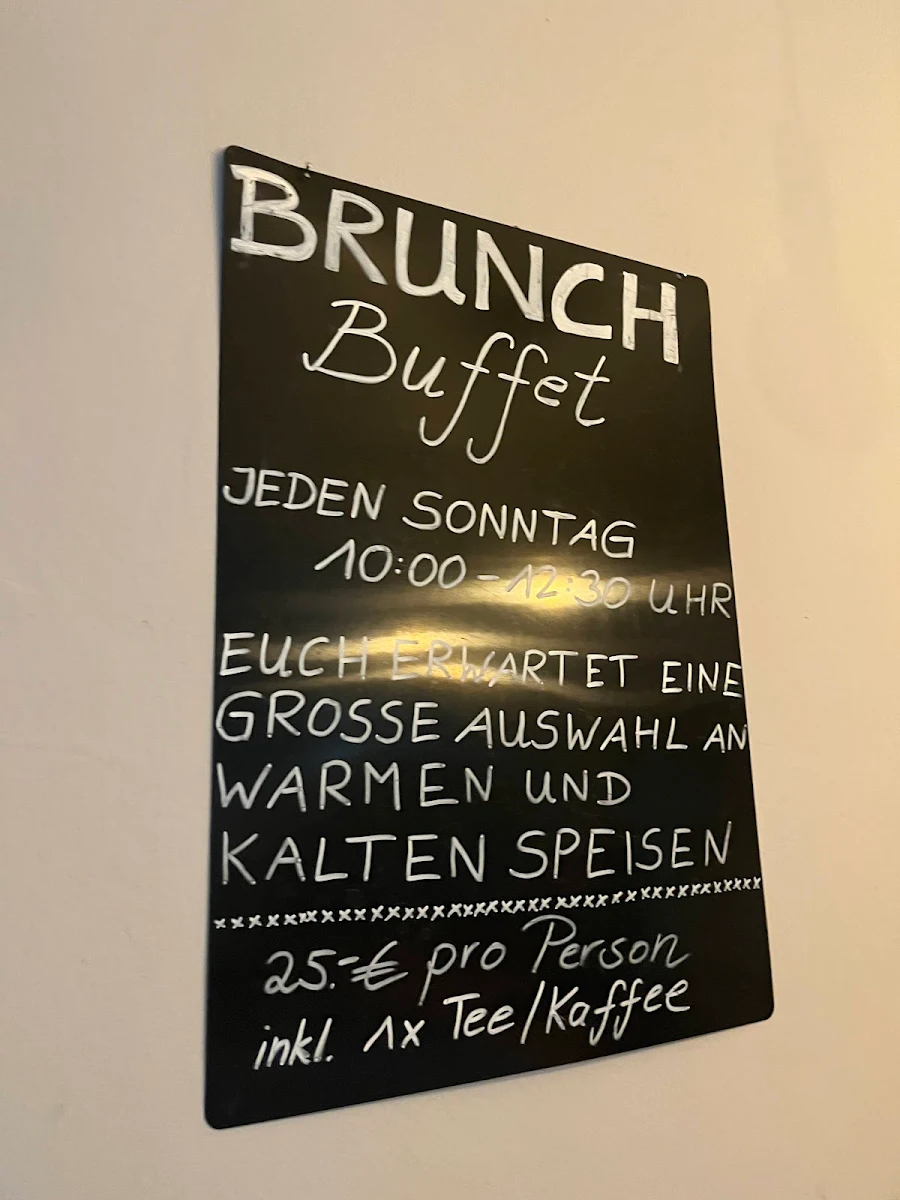 BRUNCH
Buffet
JEDEN SONNTAG
10:00 - 12:30 UHR
EUCH ERWARTET EINE
GROSSE AUSWAHL AN
WARMEN UND
KALTEN SPEISEN
xxxxxxxxxxxxxxxxxxxxxxxxxxxxxxxxxxxxxxxxxxxx
25.-€ pro Person
inkl. 1x Tee/Kaffee